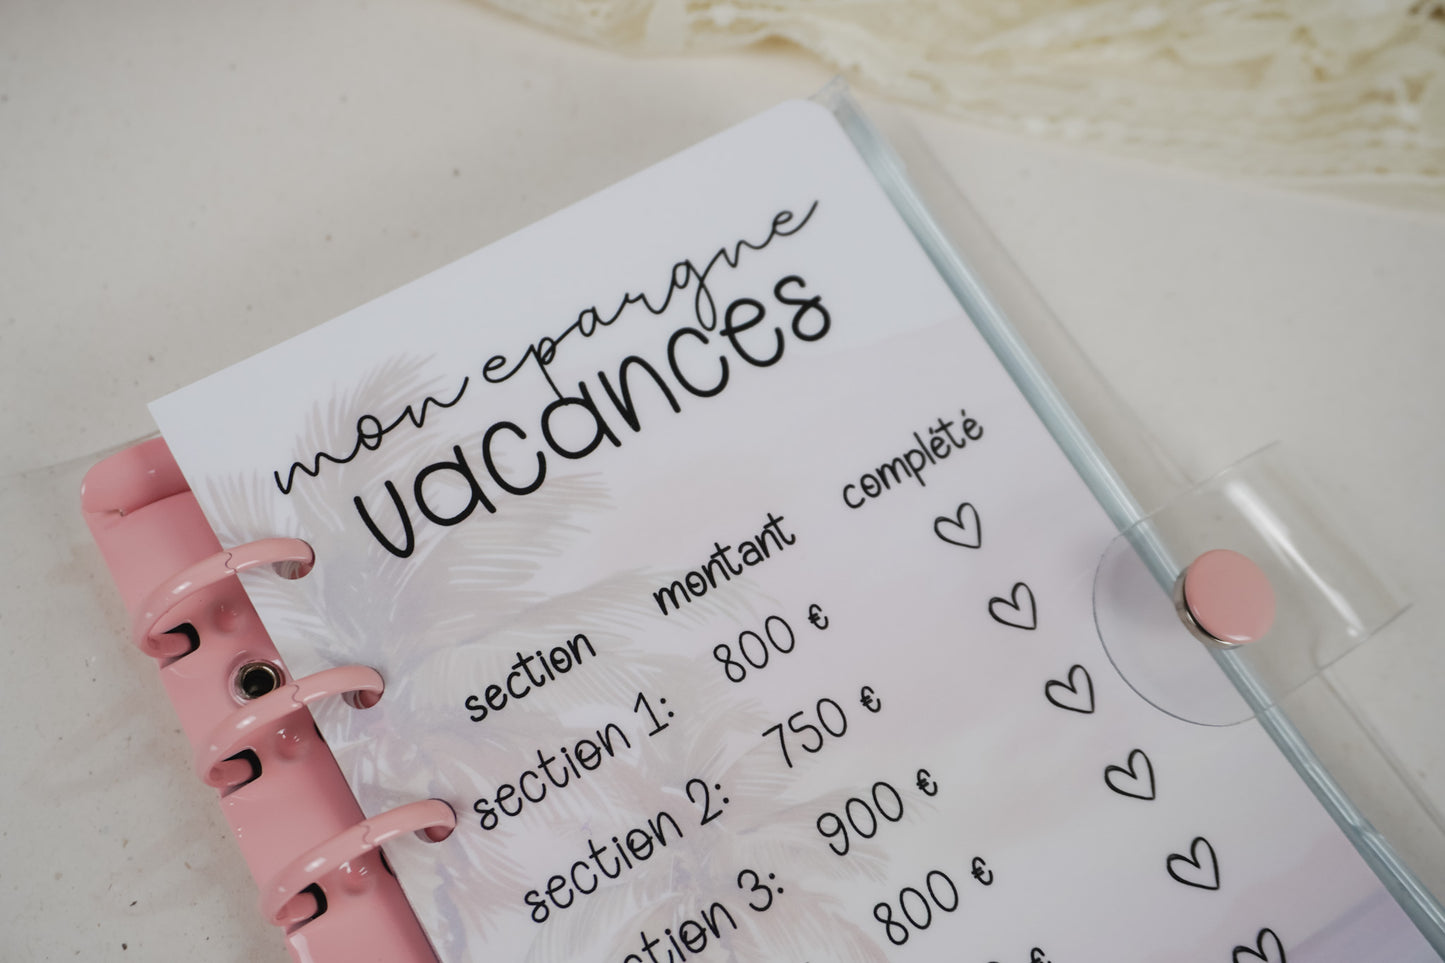 mon epargne
vacances
section montant complété
section 1: 800 €
section 2: 750 €
section 3: 900 €
800 €
€